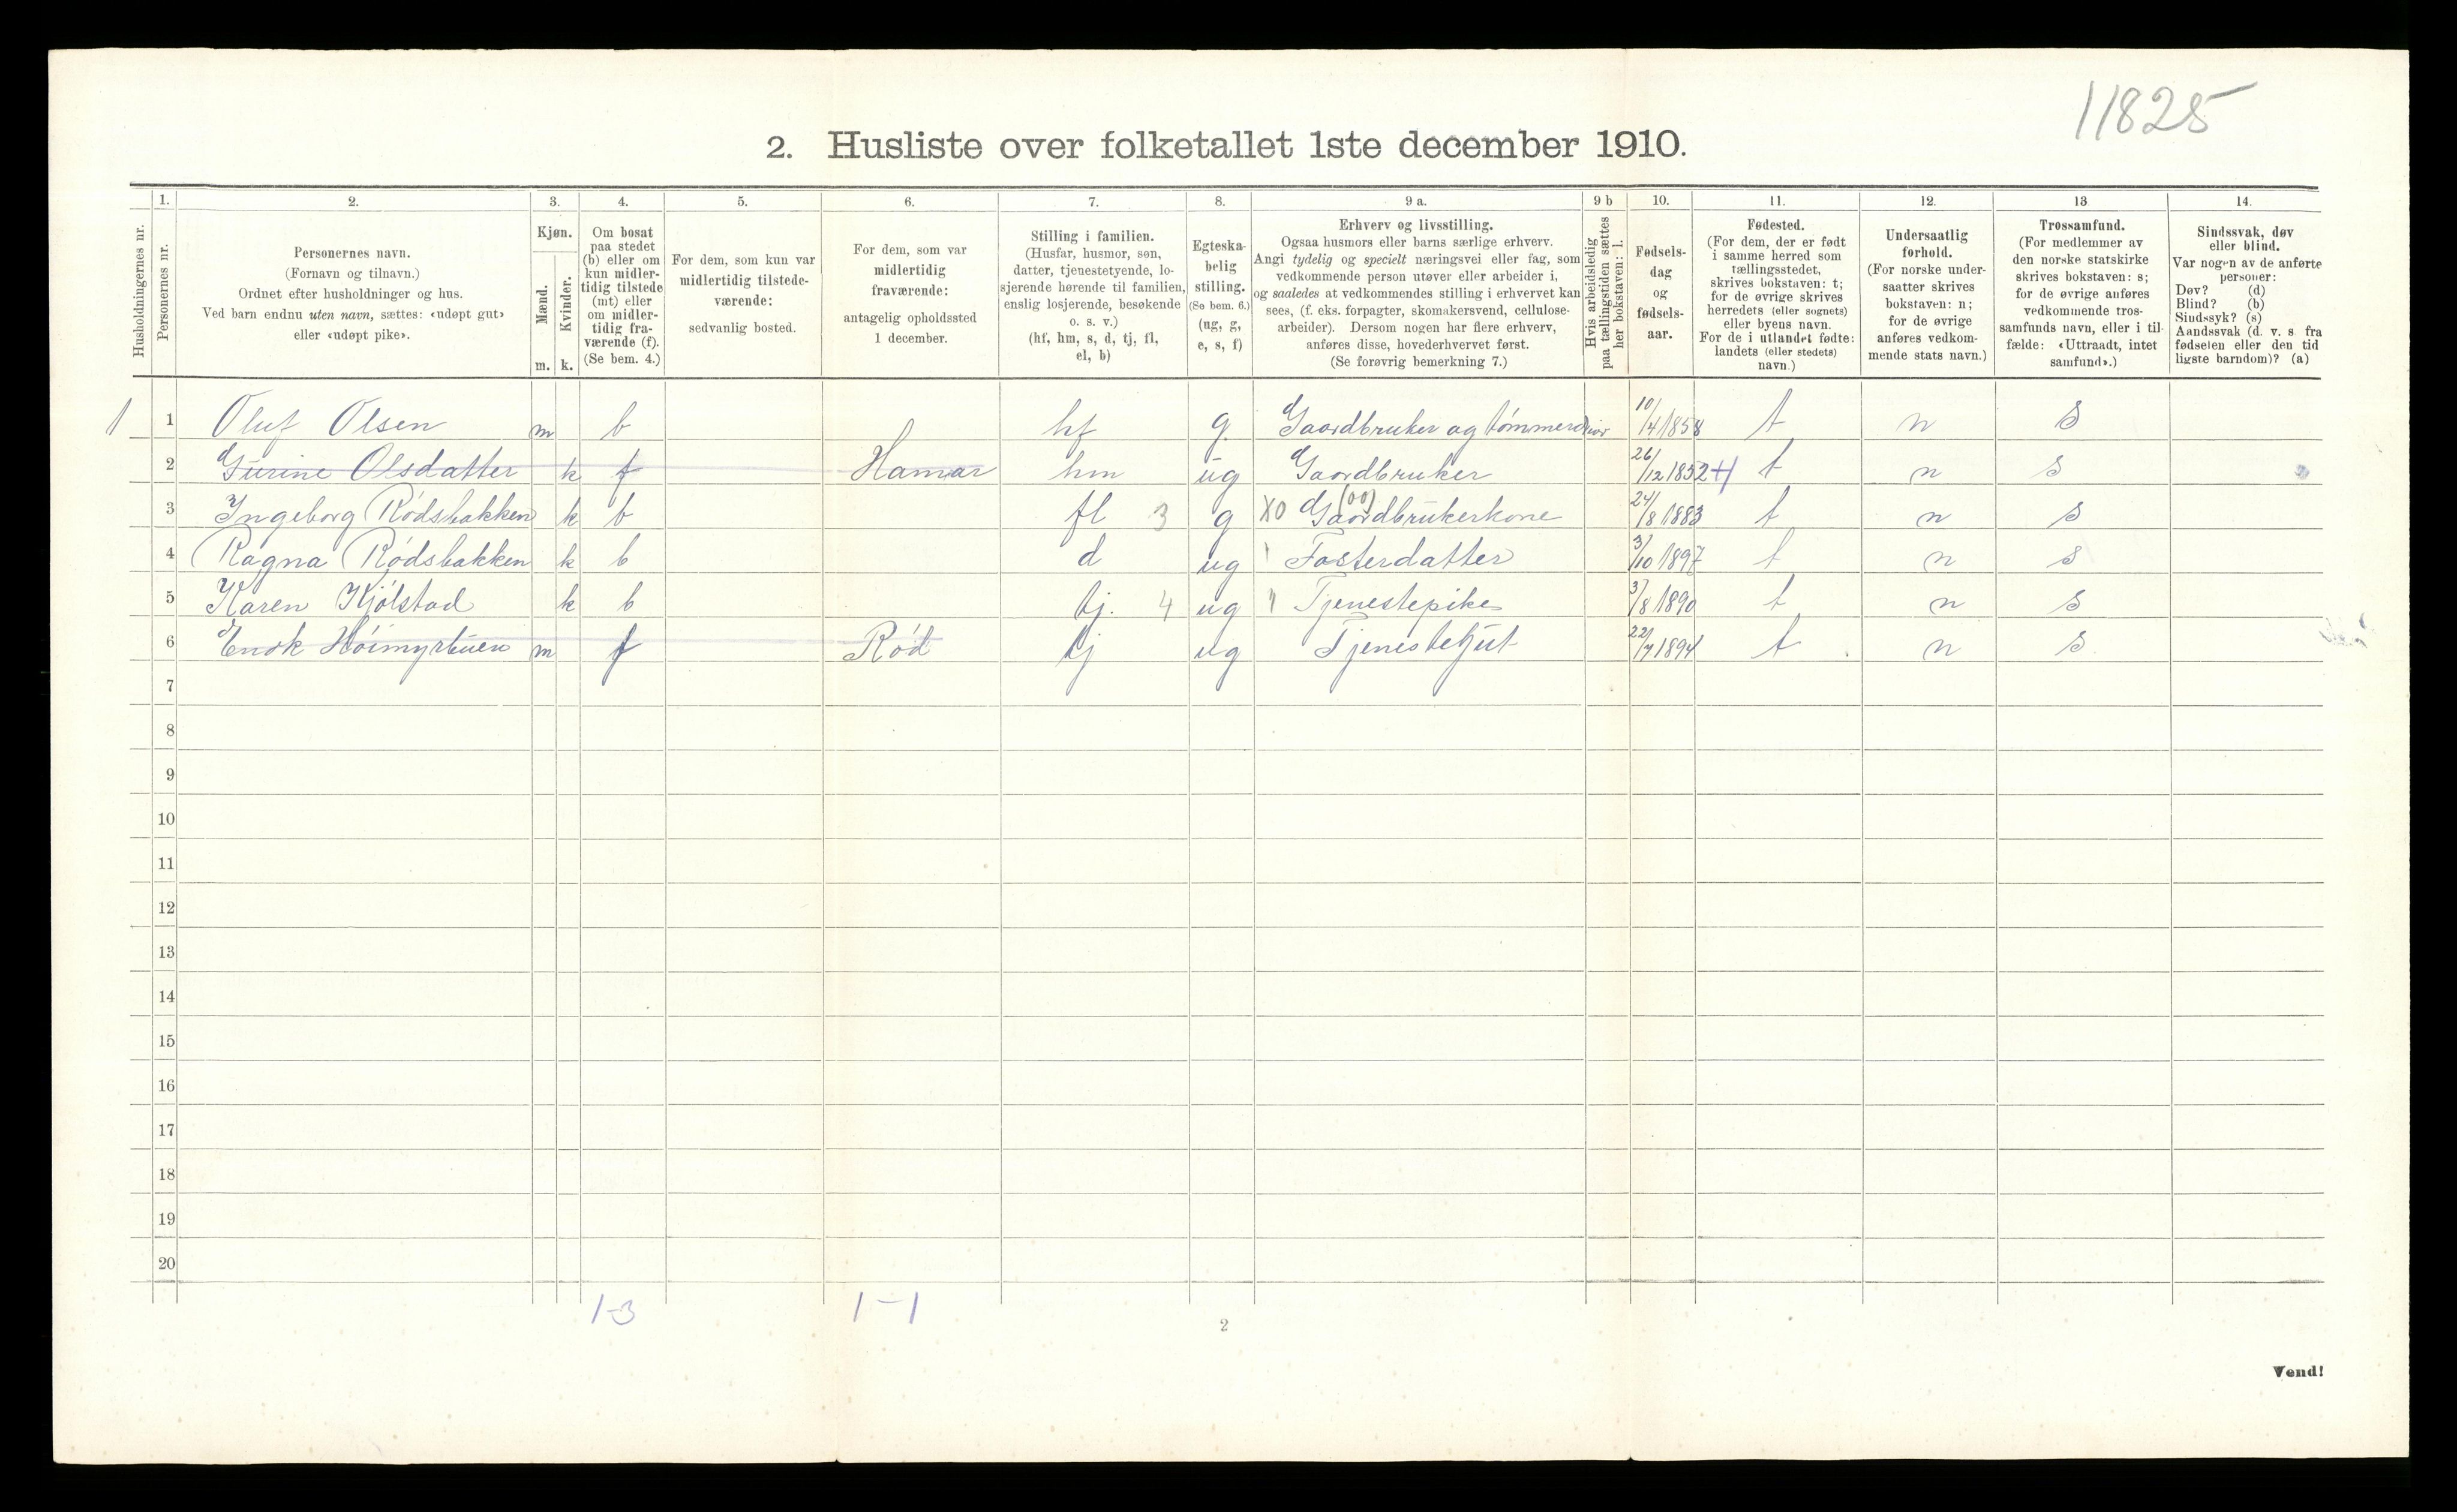 11825
2. Husliste over folketallet 1ste december 1910.
Husholdningernes nr.
1.
Personernes nr.
2.
Personernes navn.
(Fornavn og tilnavn.)
Ordnet efter husholdninger og hus.
Ved barn endnu uten navn, sættes: «udøpt gut»
eller «udøpt pike».
3.
Kjøn.
Mænd.
Kvinder.
m. k.
4.
Om bosat
paa stedet
(b) eller om
kun midler-
tidig tilstede
(mt) eller
om midler-
tidig fra-
værende (f).
(Se bem. 4.)
5.
For dem, som kun var
midlertidig tilstede-
værende:
sedvanlig bosted.
6.
For dem, som var
midlertidig
fraværende:
antagelig opholdssted
1 december.
7.
Stilling i familien.
(Husfar, husmor, søn,
datter, tjenestetyende, lo-
sjerende hørende til familien,
enslig losjerende, besøkende
o. s. v.)
(hf, hm, s, d, tj, fl,
el, b)
8.
Egteska-
belig
stilling.
(Se bem. 6.)
(ug, g,
e, s, f)
9 a.
Erhverv og livsstilling.
Ogsaa husmors eller barns særlige erhverv.
Angi tydelig og specielt næringsvei eller fag, som
vedkommende person utøver eller arbeider i,
og saaledes at vedkommendes stilling i erhvervet kan
sees, (f. eks. forpagter, skomakersvend, cellulose-
arbeider). Dersom nogen har flere erhverv,
anføres disse, hovederhvervet først.
(Se forøvrig bemerkning 7.)
9 b
Hvis arbeidsledig
paa tællingstiden sættes
her bokstaven: l.
10.
Fødsels-
dag
og
fødsels-
aar.
11.
Fødested.
(For dem, der er født
i samme herred som
tællingsstedet,
skrives bokstaven: t;
for de øvrige skrives
herredets (eller sognets)
eller byens navn.
For de i utlandet fødte:
landets (eller stedets)
navn.)
12.
Undersaatlig
forhold.
(For norske under-
saatter skrives
bokstaven: n;
for de øvrige
anføres vedkom-
mende stats navn.)
13
Trossamfund.
(For medlemmer av
den norske statskirke
skrives bokstaven: s;
for de øvrige anføres
vedkommende tros-
samfunds navn, eller i til-
fælde: «Uttraadt, intet
samfund».)
14.
Sindssvak, døv
eller blind.
Var nogen av de anførte
personer:
Døv? (d)
Blind? (b)
Sindssyk? (s)
Aandssvak (d. v. s. fra
fødselen eller den tid
ligste barndom)? (a)
1 1 Oluf Olsen m b hf g Gaardbruker og tømmer 10/4 1858 t n s
2 Gurine Olsdatter k f Hamar hm ug Gaardbruker 26/12 1852 t n s
3 Ingeborg Rødsbakken k b fl 3 g X0 Gaardbrukerkone (00) 24/8 1883 t n s
4 Ragna Rødsbakken k b d ug Fosterdatter 3/10 1897 t n s
5 Karen Kjølstad k b tj. 4 ug Tjenestepike 8 1890 t n s
6 m f Rød tj ug Tjenestegut 22/7 1894 t n s
7
8
9
10
11
12
13
14
15
16
17
18
19
20
1-3 1-1
2
Vend!